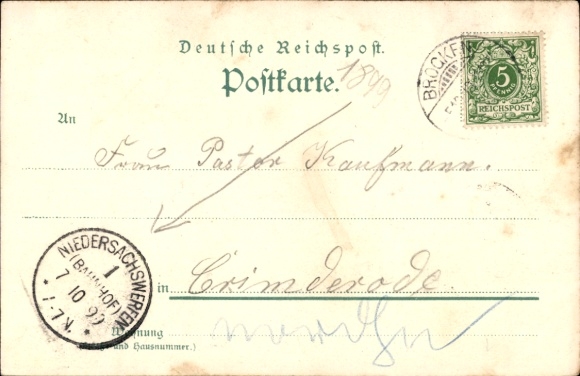 Deutsche Reichspost.
Postkarte.
1899
BROCKEN
5
PFENNIG
REICHSPOST
An
Frau Pastor Kaufmann.
in Crimderode.
Wohnung
(Straße und Hausnummer.)
NIEDERSACHSWERFEN
1
(BAHNHOF)
7 10 99
* 1-7 N. *